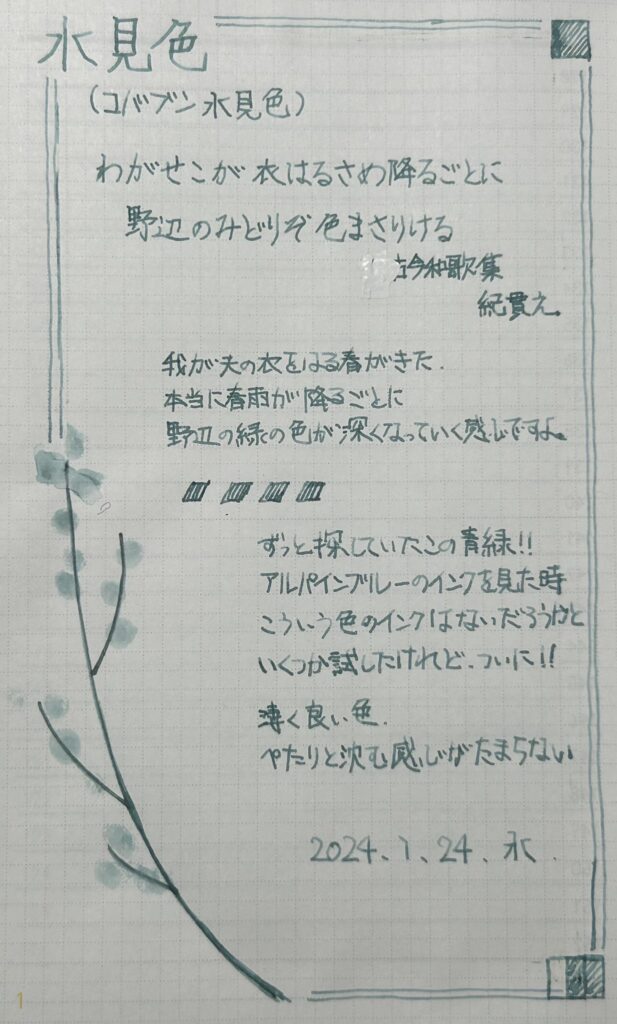 水見色
(コバブン水見色)
わがせこが 衣はるさめ降るごとに
野辺のみどりぞ 色まさりける
古今和歌集
紀貫之
我が夫の衣をはる春がきた.
本当に春雨が降るごとに
野辺の緑の色が深くなっていく感じですよ。
ずっと探していたこの青緑!!
アルパインブルーのインクを見た時
こういう色のインクはないだろうかと
いくつか試したけれど、ついに!!
凄く良い色.
ぺたりと沈む感じがたまらない
2024.1.24.水.
1